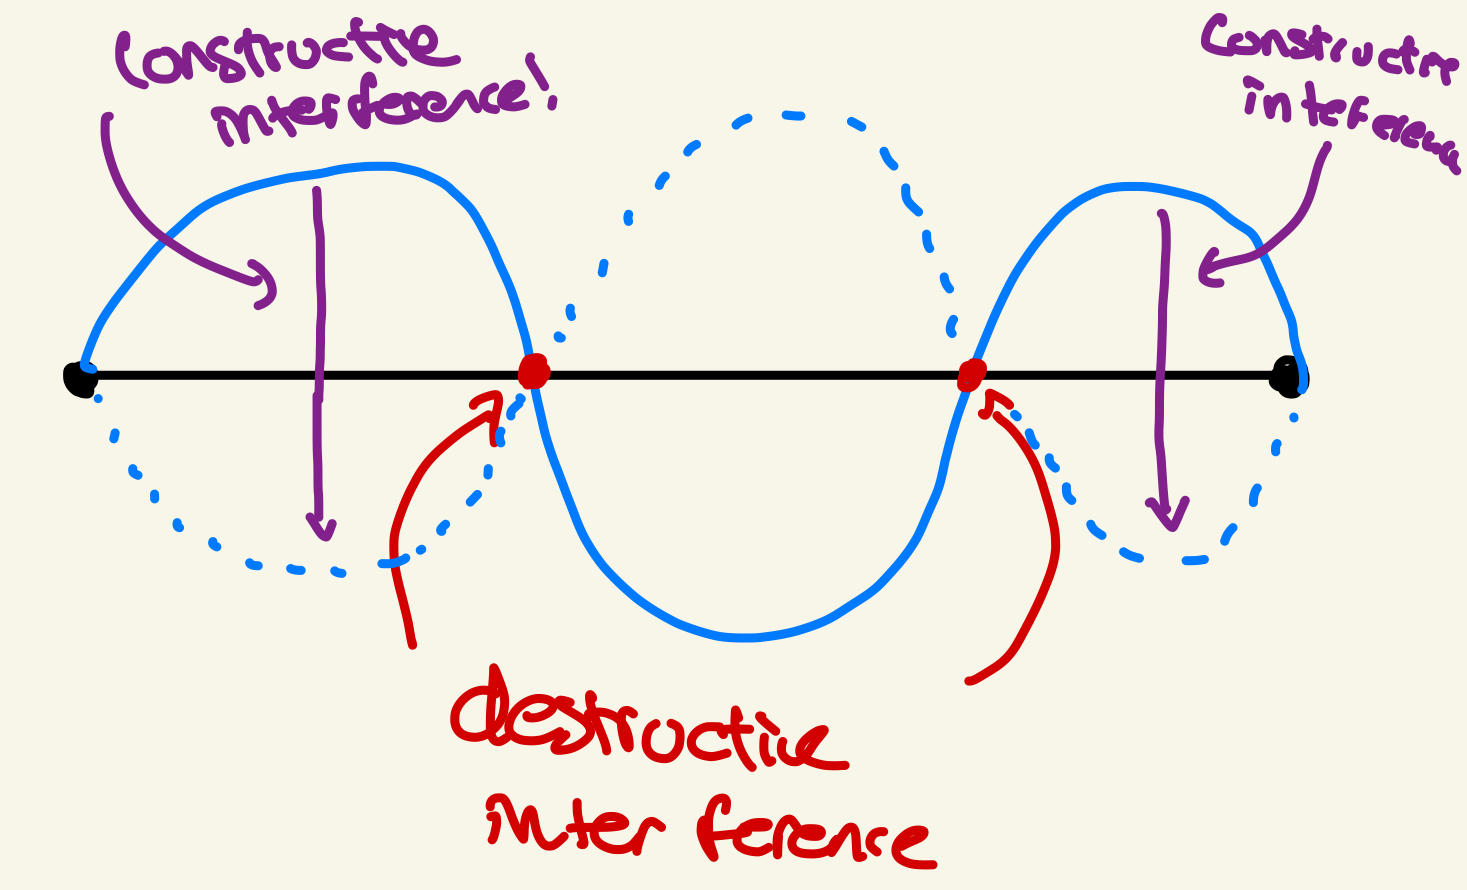 Constructive
interference!
Constructive
interference
destructive
interference